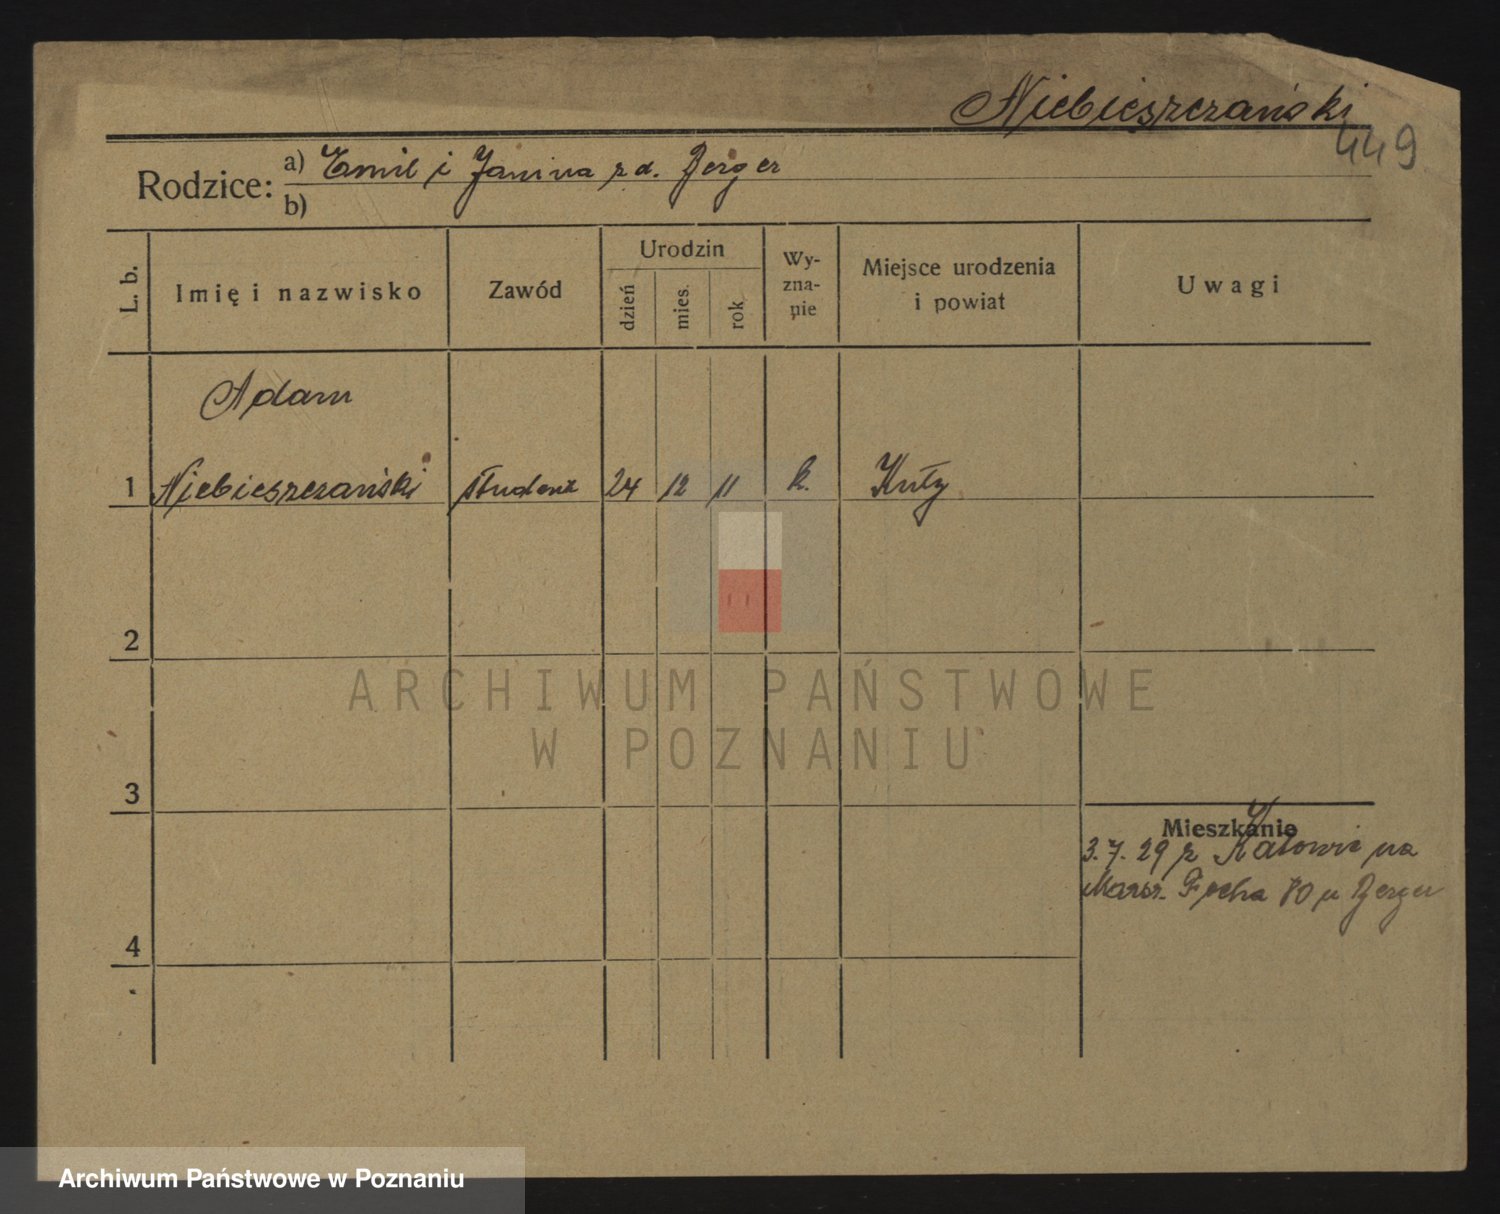 Niebieszczański
449
Rodzice: a) Emil i Janina z d. Berger
b)
L. b.
Imię i nazwisko
Zawód
Urodzin
dzień
mies.
rok
Wy-
zna-
nie
Miejsce urodzenia
i powiat
Uwagi
Adam
1 Niebieszczański student 24 12 11 k. Kuty
2
3
4
Mieszkanie
3.7.29 z Katowic na
Marsz. Focha 80 u Berger
ARCHIWUM PAŃSTWOWE
W POZNANIU
Archiwum Państwowe w Poznaniu